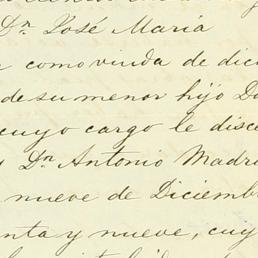 Dn. José Maria
como viuda de dici
de su menor hijo Do
cuyo cargo le disce
Dn. Antonio Madri
nueve de Diciembr
enta y nueve, cuy